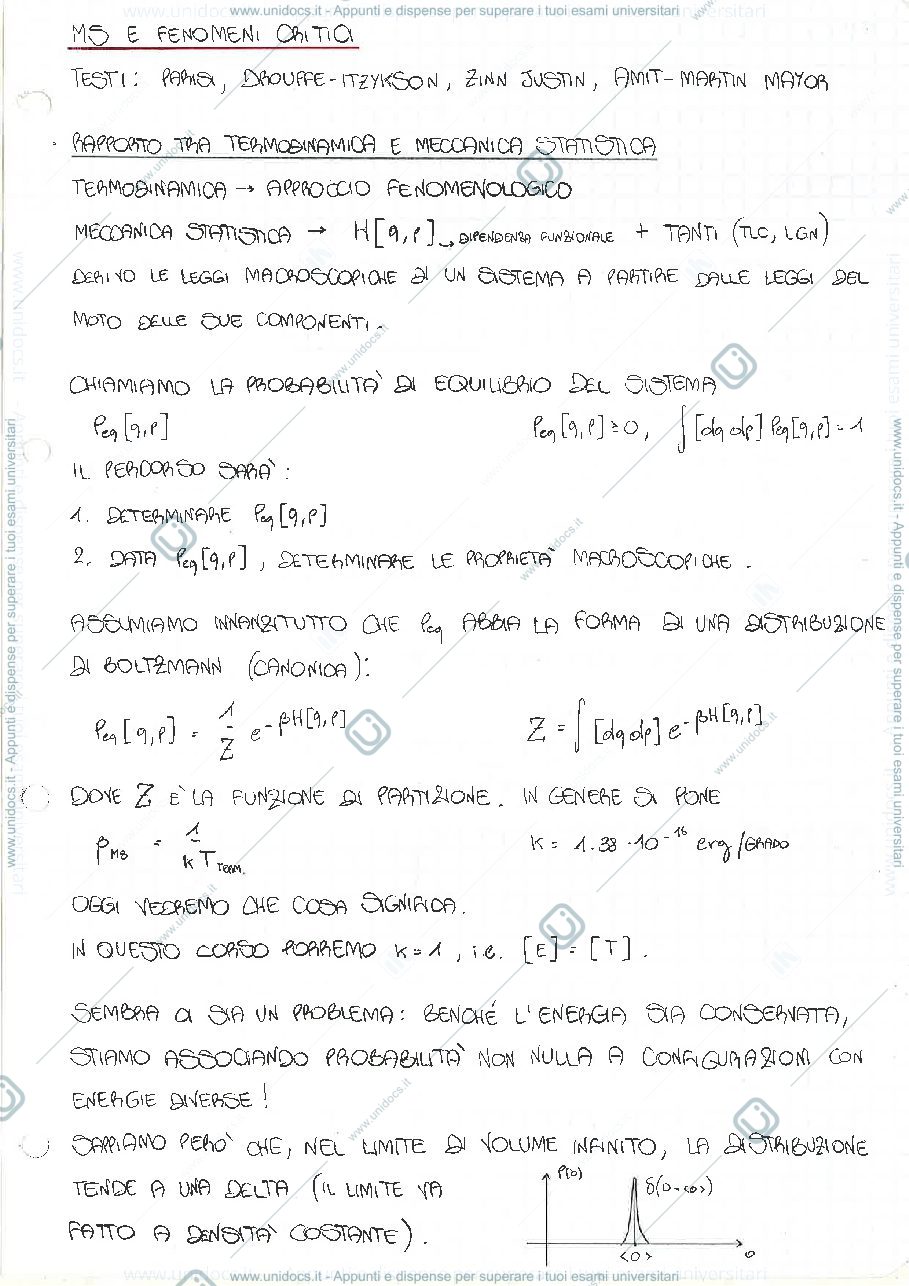 www.unidocs.it - Appunti e dispense per superare i tuoi esami universitari
MS E FENOMENI CRITICI
TESTI: PARISI, DROUFFE-ITZYKSON, ZINN JUSTIN, AMIT-MARTIN MAYOR
· RAPPORTO TRA TERMODINAMICA E MECCANICA STATISTICA
TERMODINAMICA → APPROCCIO FENOMENOLOGICO
MECCANICA STATISTICA → H[q,p] → DIPENDENZA FUNZIONALE + TANTI (TLC, LGN)
DERIVO LE LEGGI MACROSCOPICHE DI UN SISTEMA A PARTIRE DALLE LEGGI DEL
MOTO DELLE SUE COMPONENTI.
CHIAMIAMO LA PROBABILITA' DI EQUILIBRIO DEL SISTEMA
Peq[q,p] Peq[q,p] ≥ 0, ∫[dq dp] Peq[q,p] = 1
IL PERCORSO SARA':
1. DETERMINARE Peq[q,p]
2. DATA Peq[q,p], DETERMINARE LE PROPRIETA' MACROSCOPICHE.
ASSUMIAMO INNANZITUTTO CHE Peq ABBIA LA FORMA DI UNA DISTRIBUZIONE
DI BOLTZMANN (CANONICA):
Peq[q,p] = 1/Z e^-βH[q,p] Z = ∫[dq dp] e^-βH[q,p]
DOVE Z E' LA FUNZIONE DI PARTIZIONE. IN GENERE SI PONE
β_MS = 1/(k T_TERM.) k = 1.38 · 10^-16 erg/GRADO
OGGI VEDREMO CHE COSA SIGNIFICA.
IN QUESTO CORSO PORREMO k=1, i.e. [E] = [T].
SEMBRA CI SIA UN PROBLEMA: BENCHÉ L'ENERGIA SIA CONSERVATA,
STIAMO ASSOCIANDO PROBABILITA' NON NULLA A CONFIGURAZIONI CON
ENERGIE DIVERSE!
SAPPIAMO PERO' CHE, NEL LIMITE DI VOLUME INFINITO, LA DISTRIBUZIONE
TENDE A UNA DELTA (IL LIMITE VA
FATTO A DENSITA' COSTANTE).
P(O)
δ(O-<O>)
<O>
O
www.unidocs.it - Appunti e dispense per superare i tuoi esami universitari
www.unidocs.it - Appunti e dispense per superare i tuoi esami universitari
www.unidocs.it - Appunti e dispense per superare i tuoi esami universitari